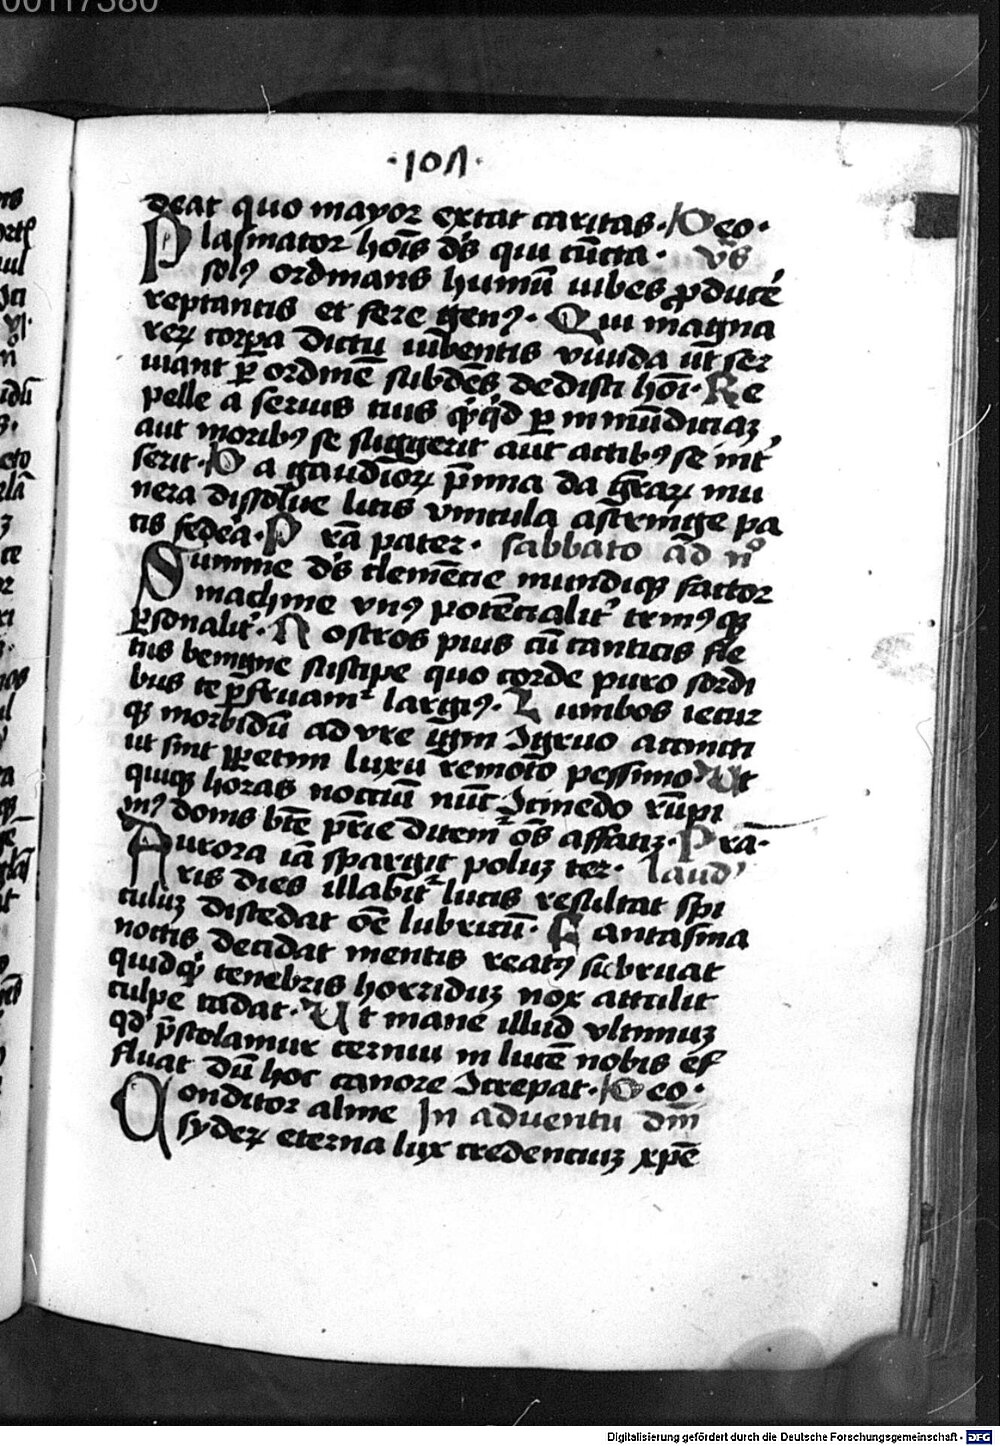 00117380
·101·
deat quo mayor extat caritas. Deo.
Plasmator hoīs dꝰs qui cūcta. vꝰs
solꝰ ordinans humū iubes ꝓducē
reptantis et fere genꝰ. Qui magna
reꝝ corꝑa dictu iubentis viuida ut ser
uiant ꝑ ordinē subdēs dedisti hoī. Re
pelle a seruis tuis qͥqd ꝑ inmūditiaꝫ
aut moribꝰ se suggerit aut actibꝰ se int
serit. Da gaudioꝝ p̄mia da gr̄aꝝ mu
nera dissolue litis vincula astringe pa
cis federa. Pr̄a pater. sabbato ad nͦ
Summe dꝰs clemēcie mundiqꝫ factor
machine vnꝰ potēcialitʼ trinꝰqꝫ
ꝑsonalitʼ. Nostros pius cū canticis fle
tus benigne suscipe quo corde puro sordi
bus te ꝑfruamʳ largiꝰ. Lumbos iecur
qꝫ morbidū adure igni ꝯgruo accincti
ut sint ꝑpetim luxu remoto pessimo. Ut
quiqꝫ horas noctiū nūc ꝯcinedo rūpi
mꝰ donis bt̄e pr̄ie ditemʳ oēs affatiꝫ. Pr̄a.
Aurora iā spargit poluꝫ ter. laudʼ
ris dies illabitʳ lucis resultat spi
culuꝫ discedat oē lubricū. Fantasma
noctis decidat mentis reatꝰ subruat
quidqͥd tenebris horriduꝫ nox attulit
culpe cadat. Ut mane illud vltimuꝫ
qd p̄stolamur cernui in lucē nobis ef
fluat dū hoc canore ꝯcrepat. Deo.
Conditor alme In aduentu dm̄
syderꝝ eterna lux credenciuꝫ xp̄e
Digitalisierung gefördert durch die Deutsche Forschungsgemeinschaft - DFG